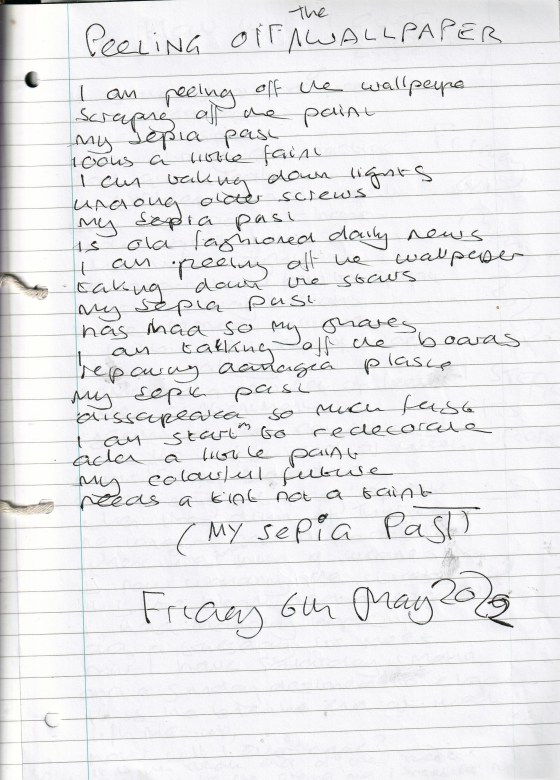 PEELING OFF The WALLPAPER
I am peeling off the wallpaper
Scraping off the paint
My sepia past
looks a little faint
I am taking down lights
undoing older screws
My sepia past
is old fashioned daily news
I am peeling off the wallpaper
taking down the stairs
My sepia past
has had so my
I am talking off the boards
repairing damaged plaster
My sepia past
dissapeared so much faster
I am starting to redecorate
add a little paint
My colourful future
needs a tint not a taint
(MY SEPIA PAST)
Friday 6th May 2022